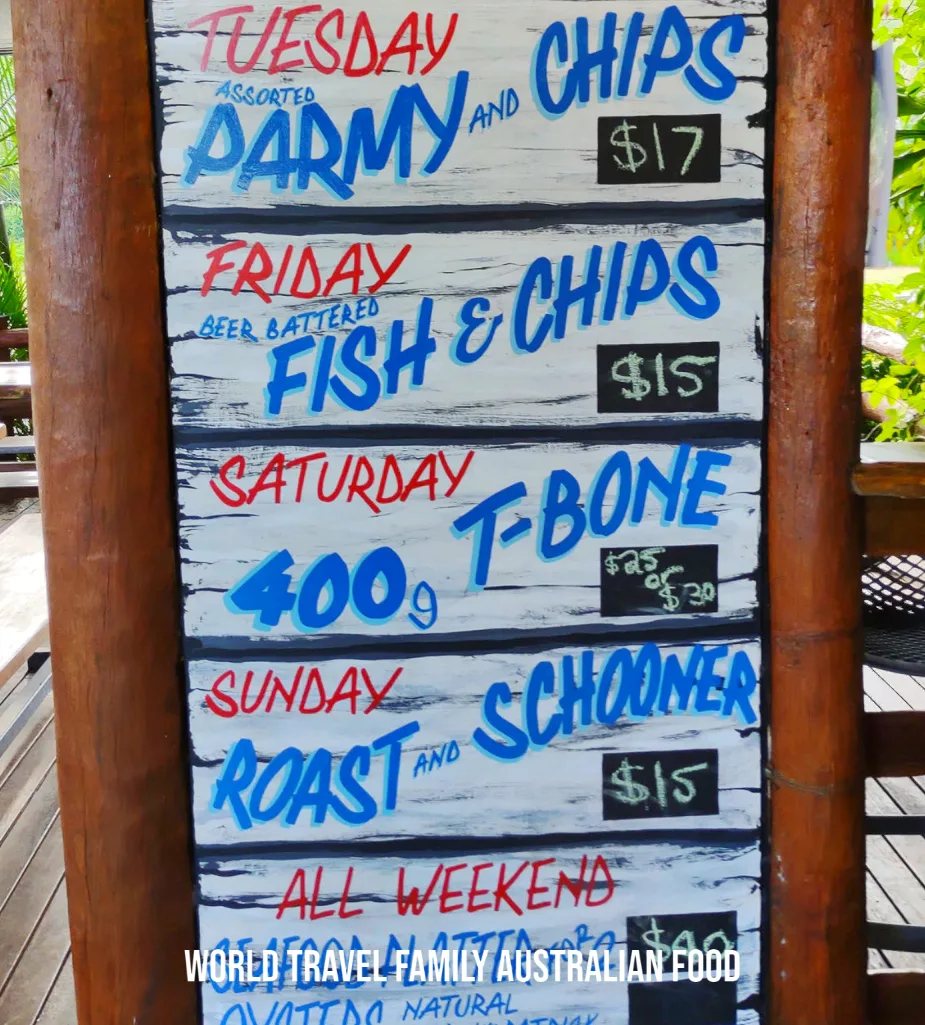 TUESDAY
ASSORTED
PARMY AND CHIPS
$17
FRIDAY
BEER BATTERED
FISH & CHIPS
$15
SATURDAY
400g T-BONE
$25
or
$30
SUNDAY
ROAST AND SCHOONER
$15
ALL WEEKEND
SEAFOOD PLATTER FOR 2
WORLD TRAVEL FAMILY AUSTRALIAN FOOD
OYSTERS NATURAL